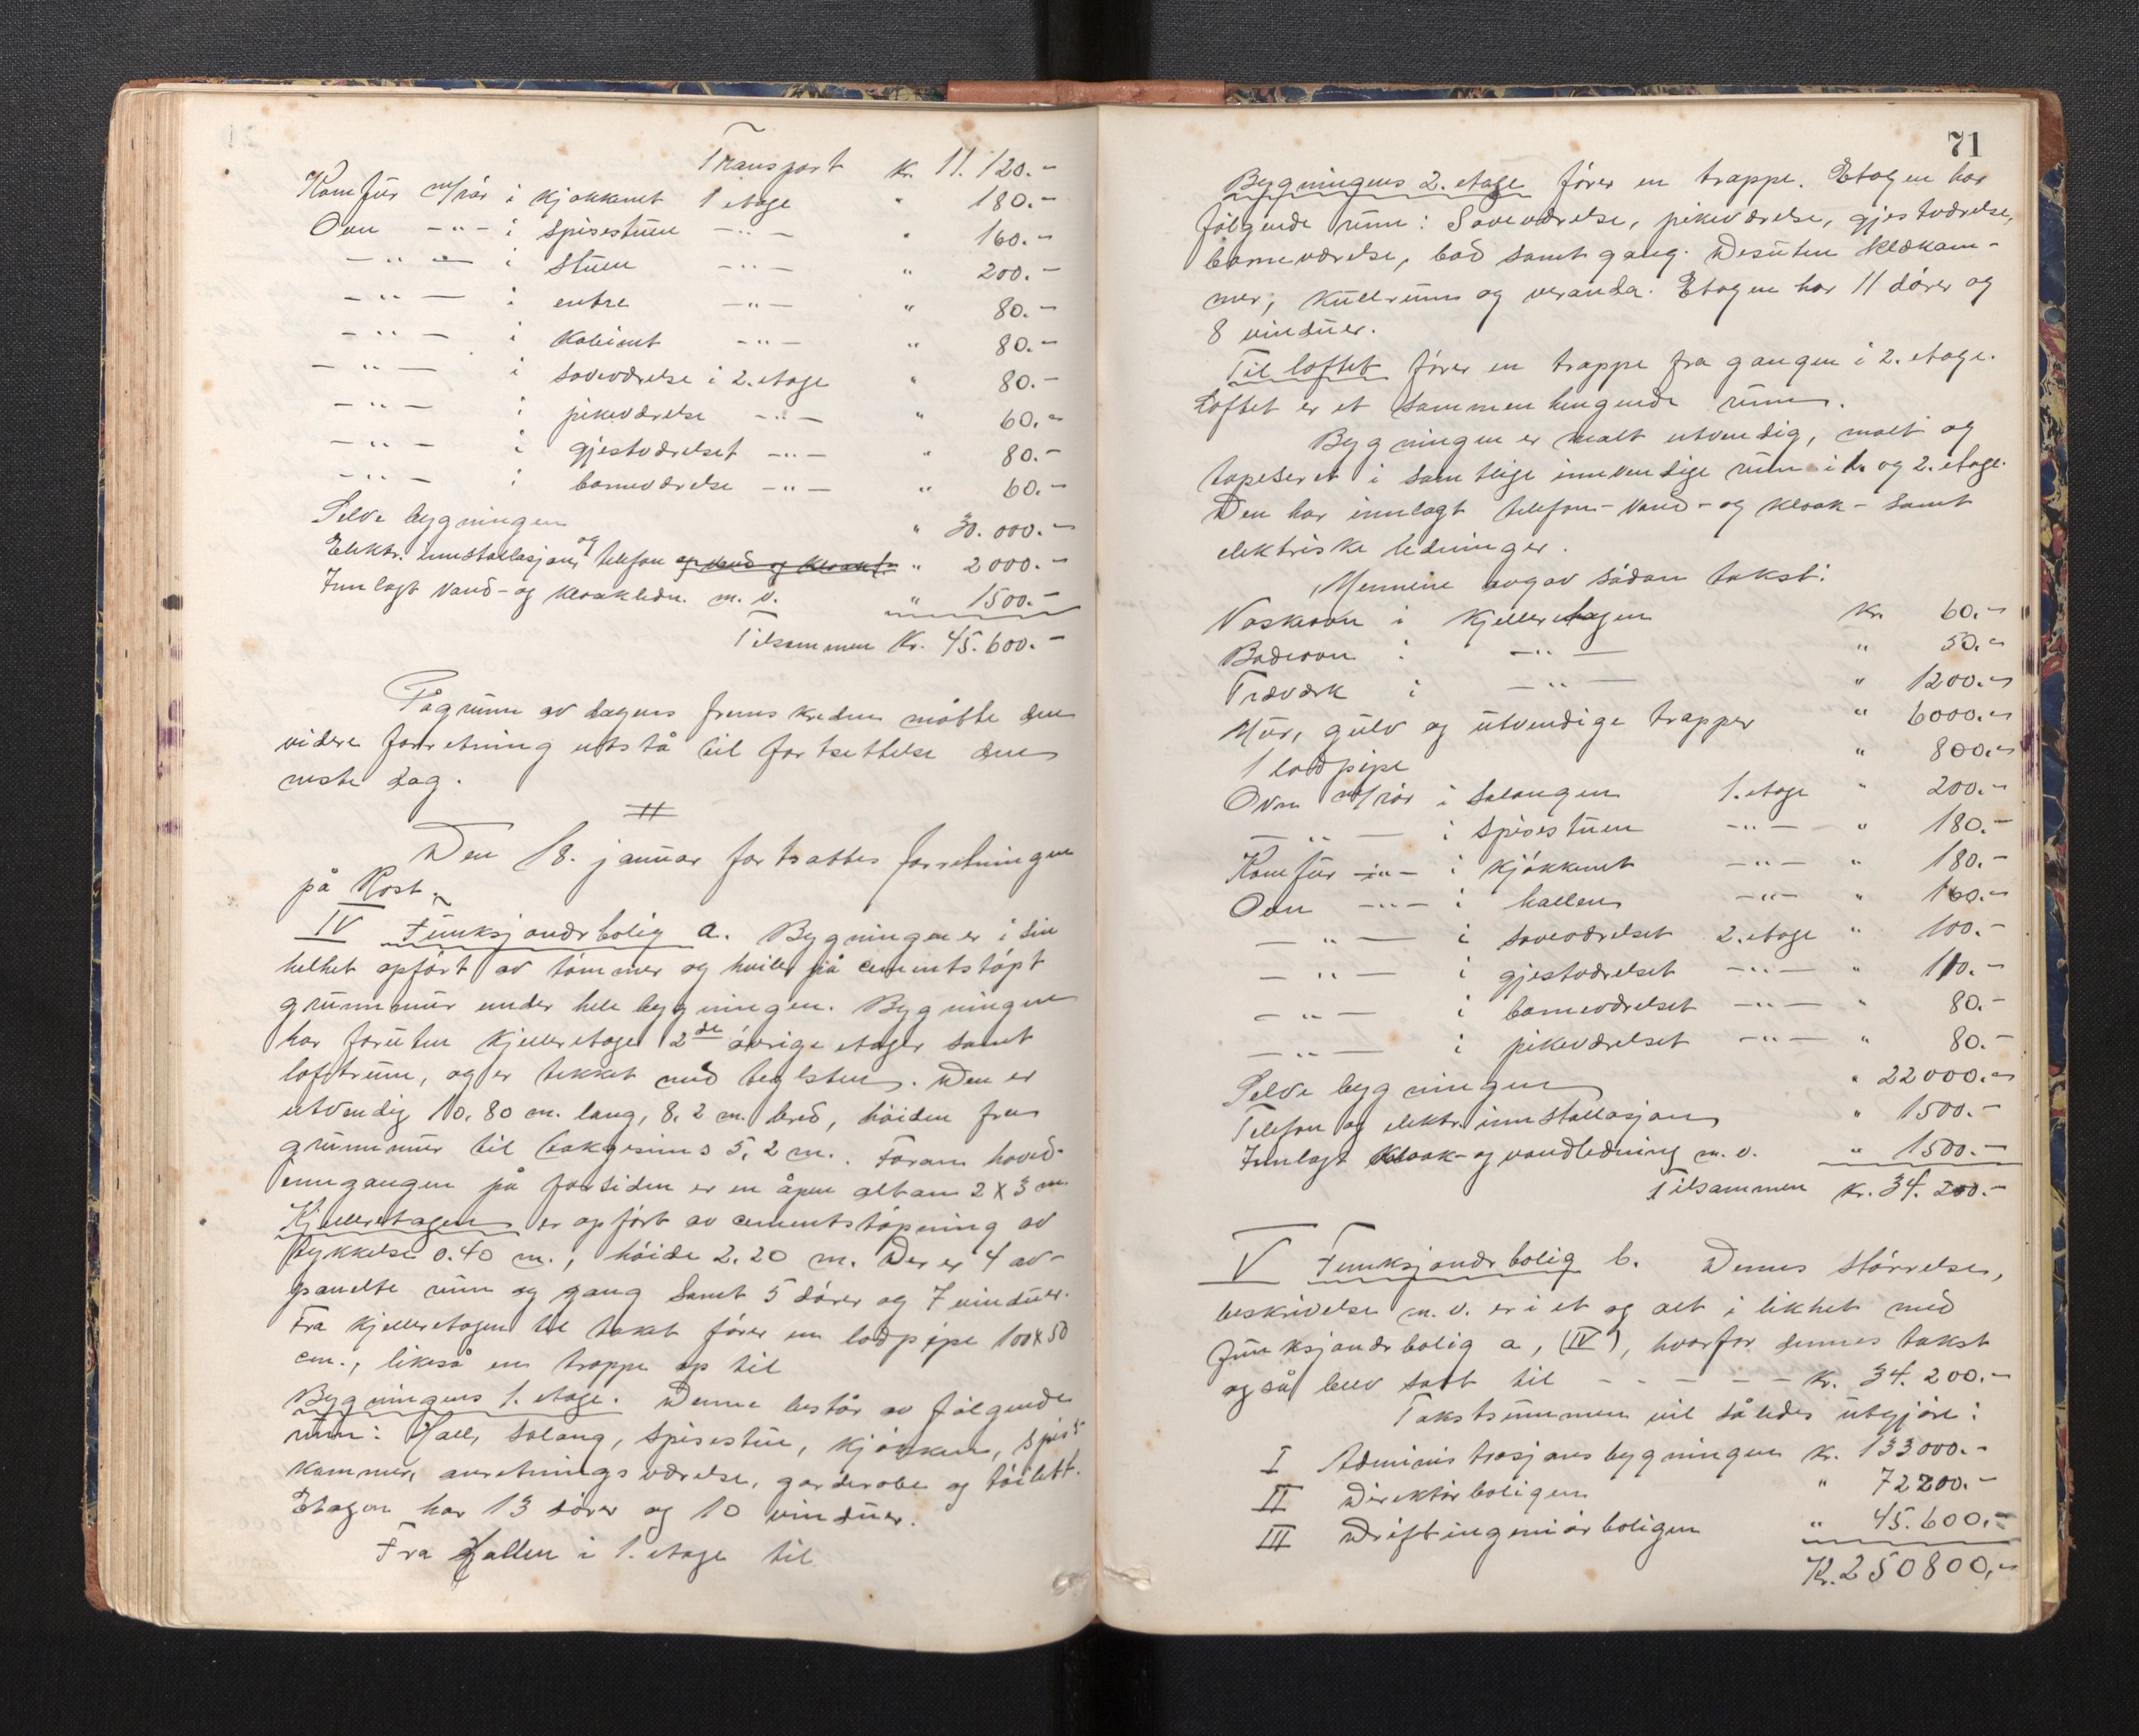 Transport kr. 11.120.-
Komfür m/rör i kjökkenet 1 etage " 180.-
Ovn -"- i spisestüen -"- " 160.-
-"- i stüen -"- " 200.-
-"- i entre -"- " 80.-
-"- i kabinet -"- " 80.-
-"- i soveværelse i 2. etage " 80.-
-"- i pikeværelse -"- " 60.-
-"- i gjestværelset -"- " 80.-
-"- i barneværelse -"- " 60.-
Selve bygningen " 30.000.-
Elektr. innstallasjon, og telefon og vand og kloakl. " 2000.-
Innlagt vand- og kloakledn. m. v. " 1500.-
Tilsammen kr. 45.600.-
Pågrunn av dagens fremskreden måtte den
videre forretning utstå til fortsettelse den
neste dag.
Den 18. januar fortsattes forretningen
på Rost.
IV Fünksjonærbolig a. Bygningen er i sin
helhet opfört av tömmer og hviler på cementstöpt
grünnmür under hele bygningen. Bygningen
har forüten kjelleretage 2de övrige etager samt
loftsrüm, og er tekket med teglsten. Den er
utvendig 10.80 m. lang, 8.2 m. bred, höiden fra
grünnmür til takgesims 5,2 m. Foran hoved-
inngangen på forsiden er en åpen altan 2 x 3 m.
Kjelleretagen er opfört av cementstöpning av
tykkelse 0.40 m., höide 2.20 m. Der er 4 av-
panelte rüm og gang samt 5 dörer og 7 vindüer.
Fra kjelleretagen til taket förer en lodpipe 100x50
cm., likeså en trappe op til
Bygningens 1. etage. Denne består av fölgende
rüm: Hall, salong, spisestüe, kjökken, spis-
kammer, anretningsværelse, garderobe og toilett.
Etagen har 13 dörer og 10 vindüer.
Fra Hallen i 1. etage til
71
Bygningens 2. etage förer en trappe. Etagen har
fölgende rüm: Soveværelse, pikeværelse, gjestværelse,
barneværelse, bad samt gang. Desüten klækam-
mer, küllrüm og veranda. Etagen har 11 dörer og
8 vindüer.
Til loftet förer en trappe fra gangen i 2. etage.
Loftet er et sammenhengende rüm.
Bygningen er malt utvendig, malt og
tapeseret i samtlige innvendige rüm i 1. og 2. etage.
Den har innlagt telefon- vand- og kloak- samt
elektriske ledninger.
Mennene avgav sådan takst:
Vaskeovn i kjelleretagen kr. 60.-
Badeovn i -"- " 50.-
Træværk i -"- " 1200.-
Mür, gülv og ütvendige trapper " 6000.-
1 lodpipe " 800.-
Ovn m/rör i salongen 1. etage " 200.-
-"- i spisestüen -"- " 180.-
Komfür -"- i kjökkenet -"- " 180.-
Ovn -"- i hallen -"- " 160.-
-"- i soveværelset 2. etage " 100.-
-"- i gjestværelset -"- " 110.-
-"- i barneværelset -"- " 80.-
-"- i pikeværelset -"- " 80.-
Selve bygningen " 22000.-
Telefon og elektr. innstallasjon " 1500.-
Innlagt kloak- og vandledning m. v. " 1500.-
Tilsammen kr. 34.200.-
V Funksjonærbolig b. Dennes störrelse,
beskrivelse m. v. er i et og alt i likhet med
fünksjonærbolig a, (IV), hvorfor dennes takst
også blev satt til - - - - - kr. 34.200.-
Takstsümmen vil således utgjöre:
I Administrasjonsbygningen kr. 133000.-
II Direktörboligen " 72200.-
III Driftingeniörboligen " 45.600.-
Kr. 250800,-